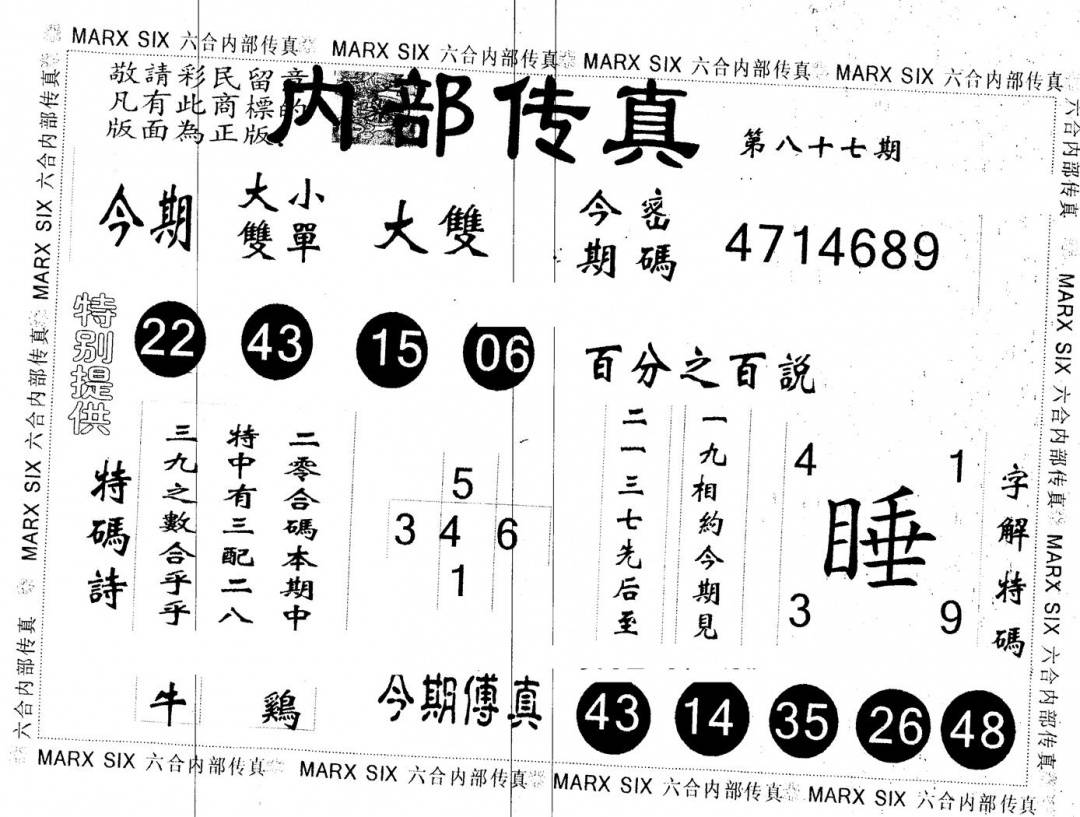 MARX SIX 六合内部传真 MARX SIX 六合内部传真 MARX SIX 六合内部传真 MARX SIX 六合内部传真
敬請彩民留意
凡有此商標的
版面為正版
内部传真
第八十七期
今期
大小
雙單
大雙
今密
期碼
4714689
特别提供
22 43 15 06
百分之百説
特碼詩
二零合碼本期中
特中有三配二八
三九之數合乎乎
5
3 4 6
1
一九相約今期見
二一三七先后至
4 1
睡
3 9
字解特碼
牛 鷄
今期傅真
43 14 35 26 48
MARX SIX 六合内部传真 MARX SIX 六合内部传真 MARX SIX 六合内部传真 MARX SIX 六合内部传真
六合内部传真 MARX SIX 六合内部传真 MARX SIX 六合内部传真 MARX SIX 六合内部传真
六合内部传真 MARX SIX 六合内部传真 MARX SIX 六合内部传真